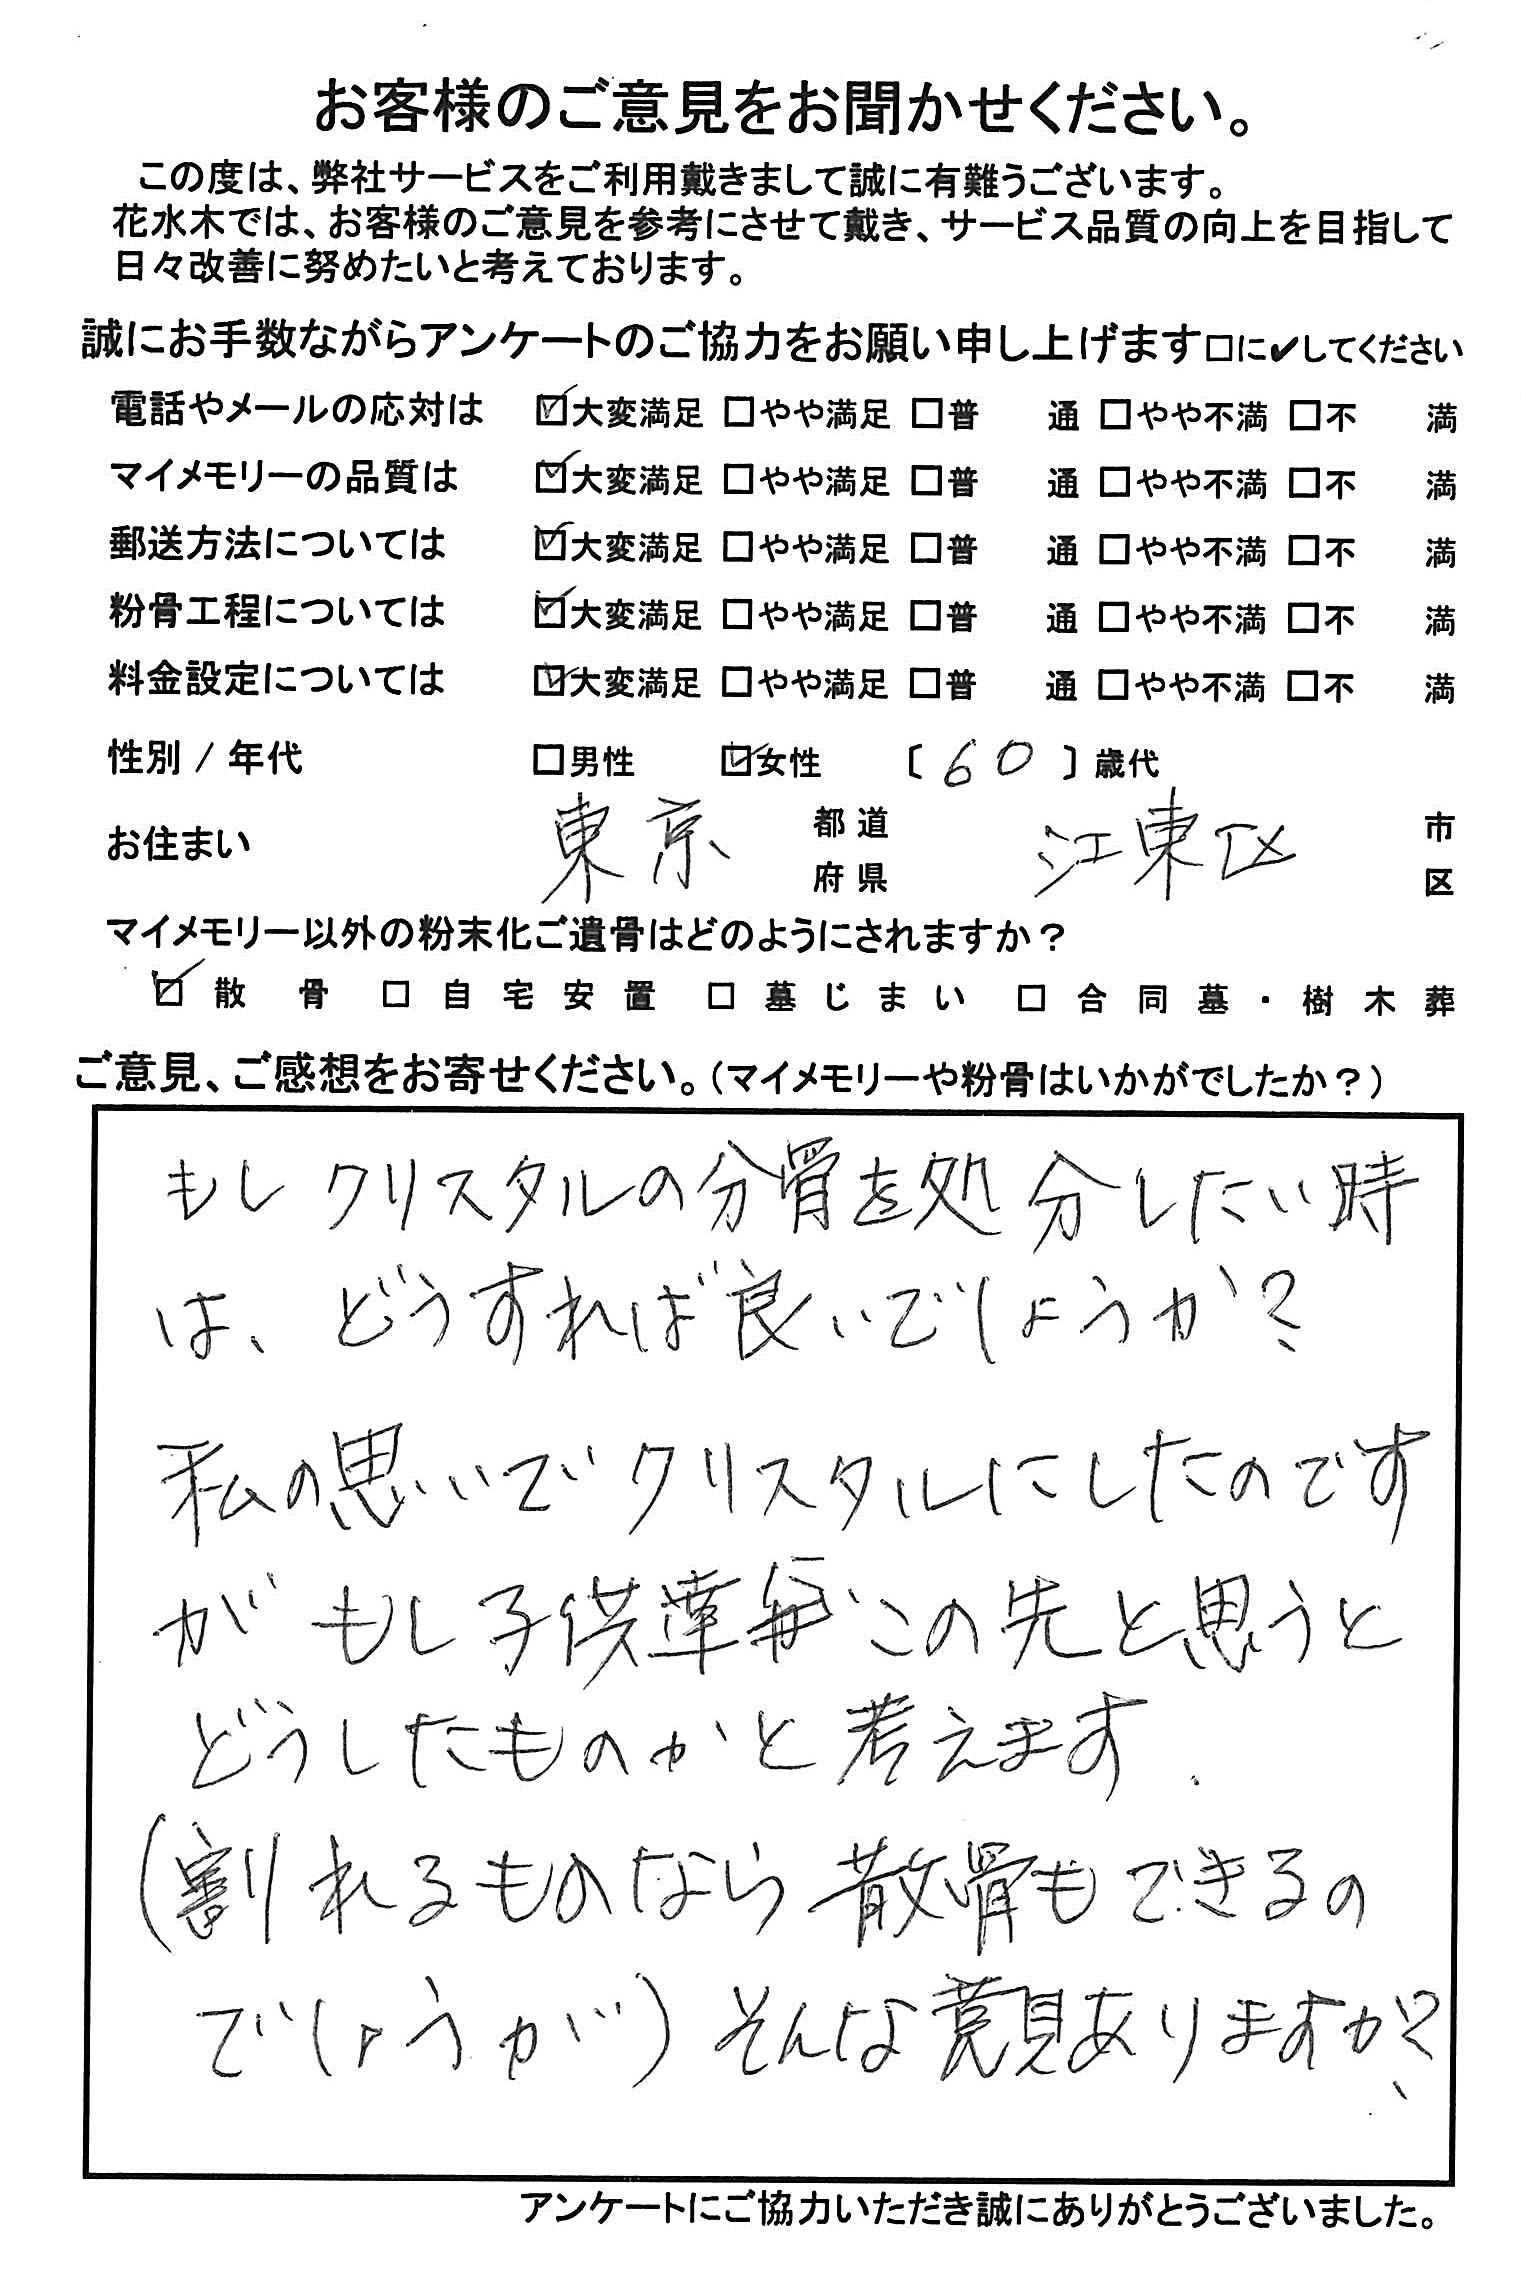 お客様のご意見をお聞かせください。
この度は、弊社サービスをご利用戴きまして誠に有難うございます。
花水木では、お客様のご意見を参考にさせて戴き、サービス品質の向上を目指して
日々改善に努めたいと考えております。
誠にお手数ながらアンケートのご協力をお願い申し上げます□に✔してください
電話やメールの応対は ☑大変満足 □やや満足 □普 通 □やや不満 □不 満
マイメモリーの品質は ☑大変満足 □やや満足 □普 通 □やや不満 □不 満
郵送方法については ☑大変満足 □やや満足 □普 通 □やや不満 □不 満
粉骨工程については ☑大変満足 □やや満足 □普 通 □やや不満 □不 満
料金設定については ☑大変満足 □やや満足 □普 通 □やや不満 □不 満
性別 / 年代 □男性 ☑女性 〔 60 〕歳代
お住まい 東京 都道府県 江東区 市区
マイメモリー以外の粉末化ご遺骨はどのようにされますか？
☑ 散骨 □ 自宅安置 □ 墓じまい □ 合同墓・樹木葬
ご意見、ご感想をお寄せください。（マイメモリーや粉骨はいかがでしたか？）
もしクリスタルの分骨を処分したい時
は、どうすれば良いでしょうか?
私の思いでクリスタルにしたのです
がもし子供達 がこの先と思うと
どうしたものかと考えます.
(割れるものなら散骨もできるの
でしょうが) そんな意見ありますか?
アンケートにご協力いただき誠にありがとうございました。